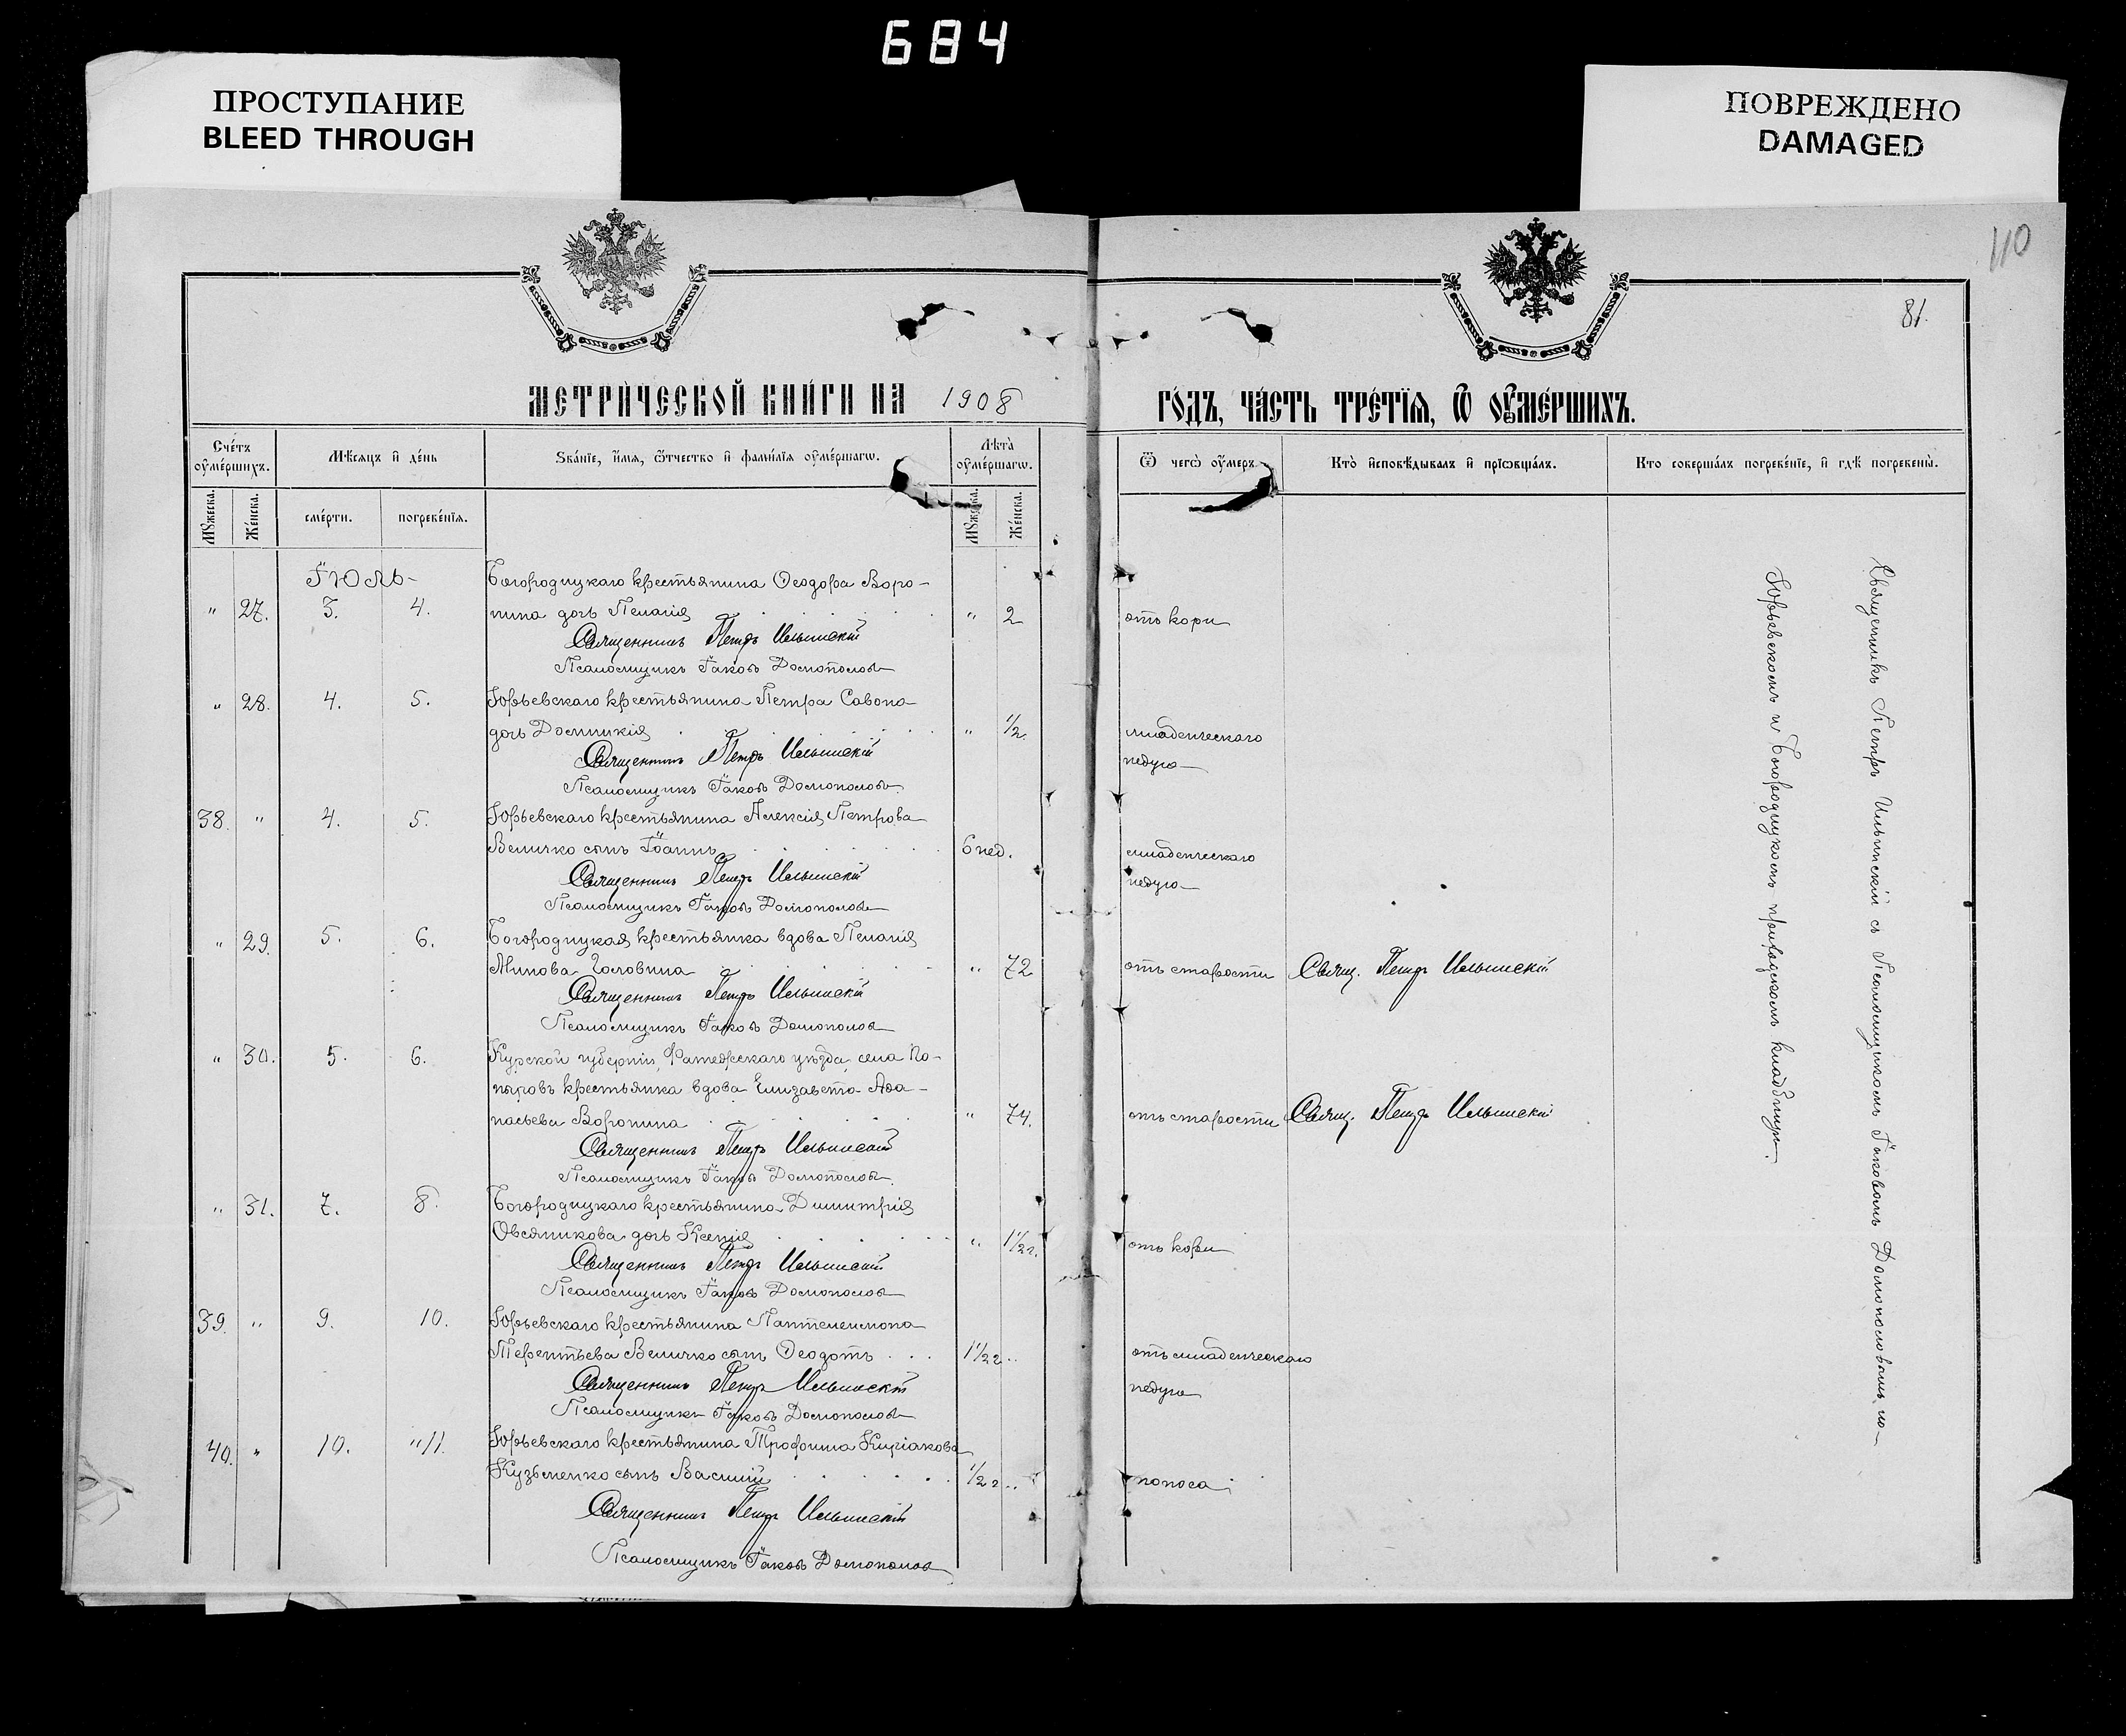 684
ПРОСТУПАНИЕ
BLEED THROUGH
ПОВРЕЖДЕНО
DAMAGED
110
81.
МЕТРИЧЕСКОЙ КНИГИ НА 1908
ГОДЪ, ЧАСТЬ ТРЕТІЯ, Ѡ ОУМЕРШИХЪ.
Счетъ оумершихъ.
Мѣсяцъ и день
Званіе, имя, отчество и фамилія оумершагѡ.
Лѣта оумершагѡ.
Ѿ чегѡ оумеръ
Кто исповѣдывалъ и пріѡбщалъ.
Кто совершалъ погребеніе, и гдѣ погребены.
Мужеска.
Женска.
смерти.
погребенія.
Мужеска.
Женска.
Іюль
Богородицкаго крестьянина Ѳеодора Воро-
" 27. 3. 4. нина дочь Пелагія " 2 отъ кори
Священникъ Петръ Ильинскій
Псаломщикъ Іаковъ Домополов
" 28. 4. 5. Юрьевскаго крестьянина Петра Савона
дочь Домникія " 1/2. младенческаго
недуга
Священникъ Петръ Ильинскій
Псаломщикъ Іаковъ Домополов
38. " 4. 5. Юрьевскаго крестьянина Алексія Петрова
Величко сынъ Іоаннъ 6 нед. младенческаго
недуга
Священникъ Петръ Ильинскій
Псаломщикъ Іаковъ Домополов
" 29. 5. 6. Богородицкая крестьянка вдова Пелагія
Минова Головина " 72 отъ старости Свящ. Петръ Ильинскій
Священникъ Петръ Ильинскій
Псаломщикъ Іаковъ Домополов
" 30. 5. 6. Курской губерніи, Фатежскаго уѣзда, села По-
ныровъ крестьянка вдова Елизавета Аѳа-
насьева Воронина " 74. отъ старости Свящ. Петръ Ильинскій
Священникъ Петръ Ильинскій
Псаломщикъ Іаковъ Домополов
" 31. 7. 8. Богородицкаго крестьянина Димитрія
Овсянникова дочь Ксенія " 1 1/2 г. отъ кори
Священникъ Петръ Ильинскій
Псаломщикъ Іаковъ Домополов
39. " 9. 10. Юрьевскаго крестьянина Пантелеимона
Терентьева Величко сынъ Ѳеодотъ 1 1/2 г. " отъ младенческаго
недуга
Священникъ Петръ Ильинскій
Псаломщикъ Іаковъ Домополов
40. " 10. " 11. Юрьевскаго крестьянина Трофима Киріакова
Кузьменко сынъ Василій 1/2 г. " поноса
Священникъ Петръ Ильинскій
Псаломщикъ Іаковъ Домополов
Священникъ Петръ Ильинскій съ Псаломщикомъ Іаковомъ Домополовымъ, на
Юрьевскомъ и Богородицкомъ приходскомъ кладбищѣ.